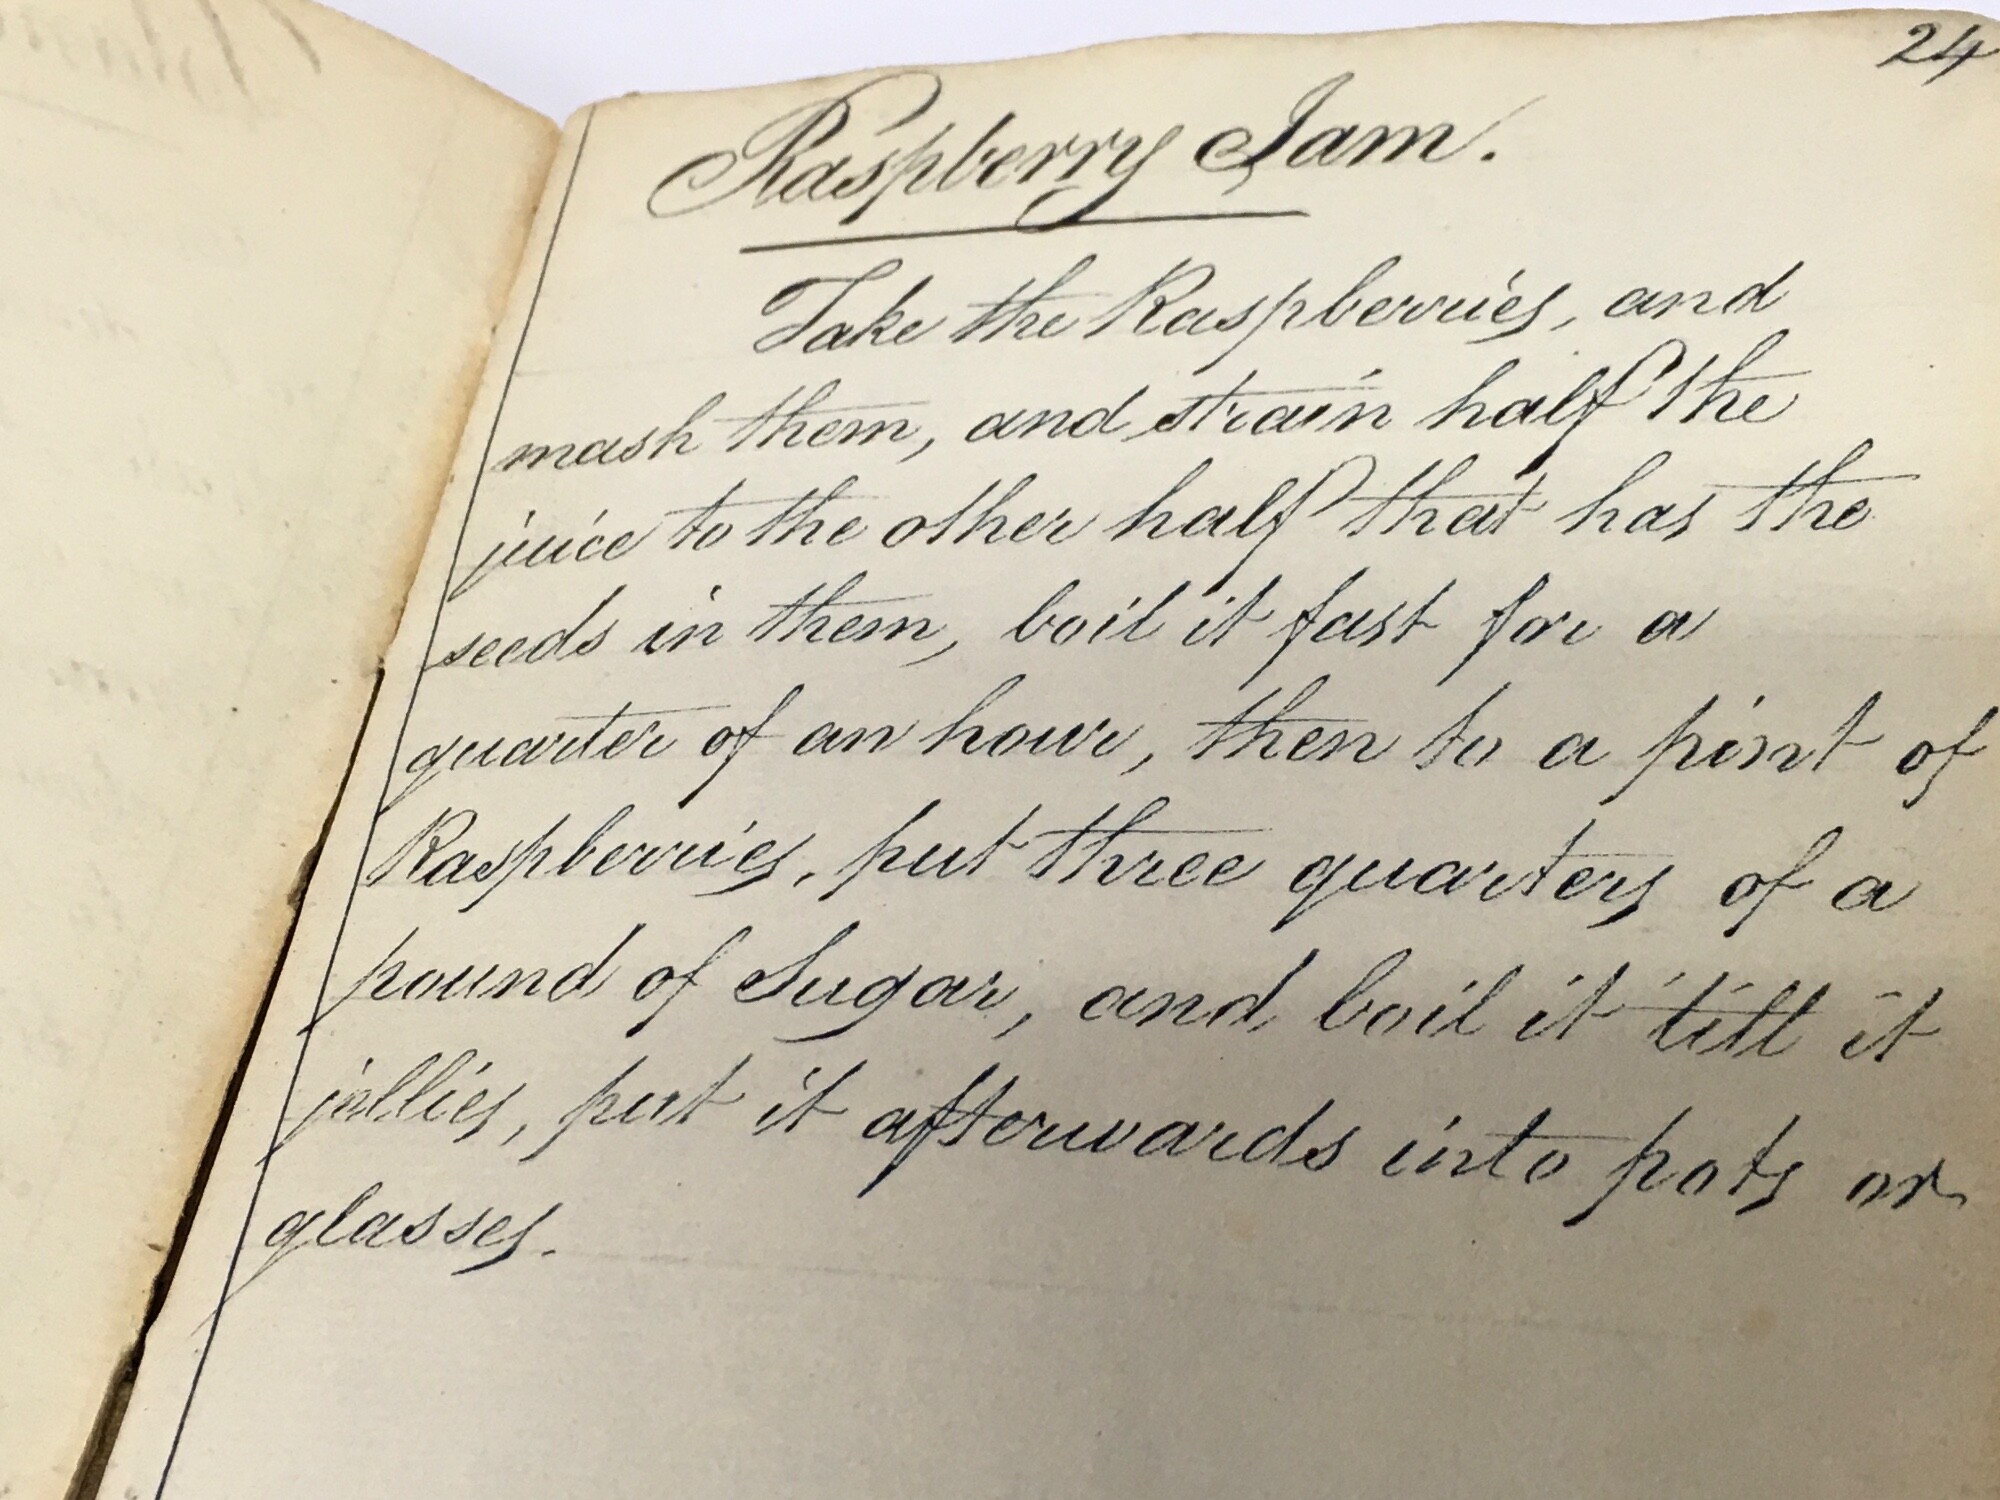 24
Raspberry Jam.
Take the Raspberries, and
mash them, and strain half the
juice to the other half that has the
seeds in them, boil it fast for a
quarter of an hour, then to a pint of
Raspberries, put three quarters of a
pound of Sugar, and boil it till it
jellies, put it afterwards into pots or
glasses.